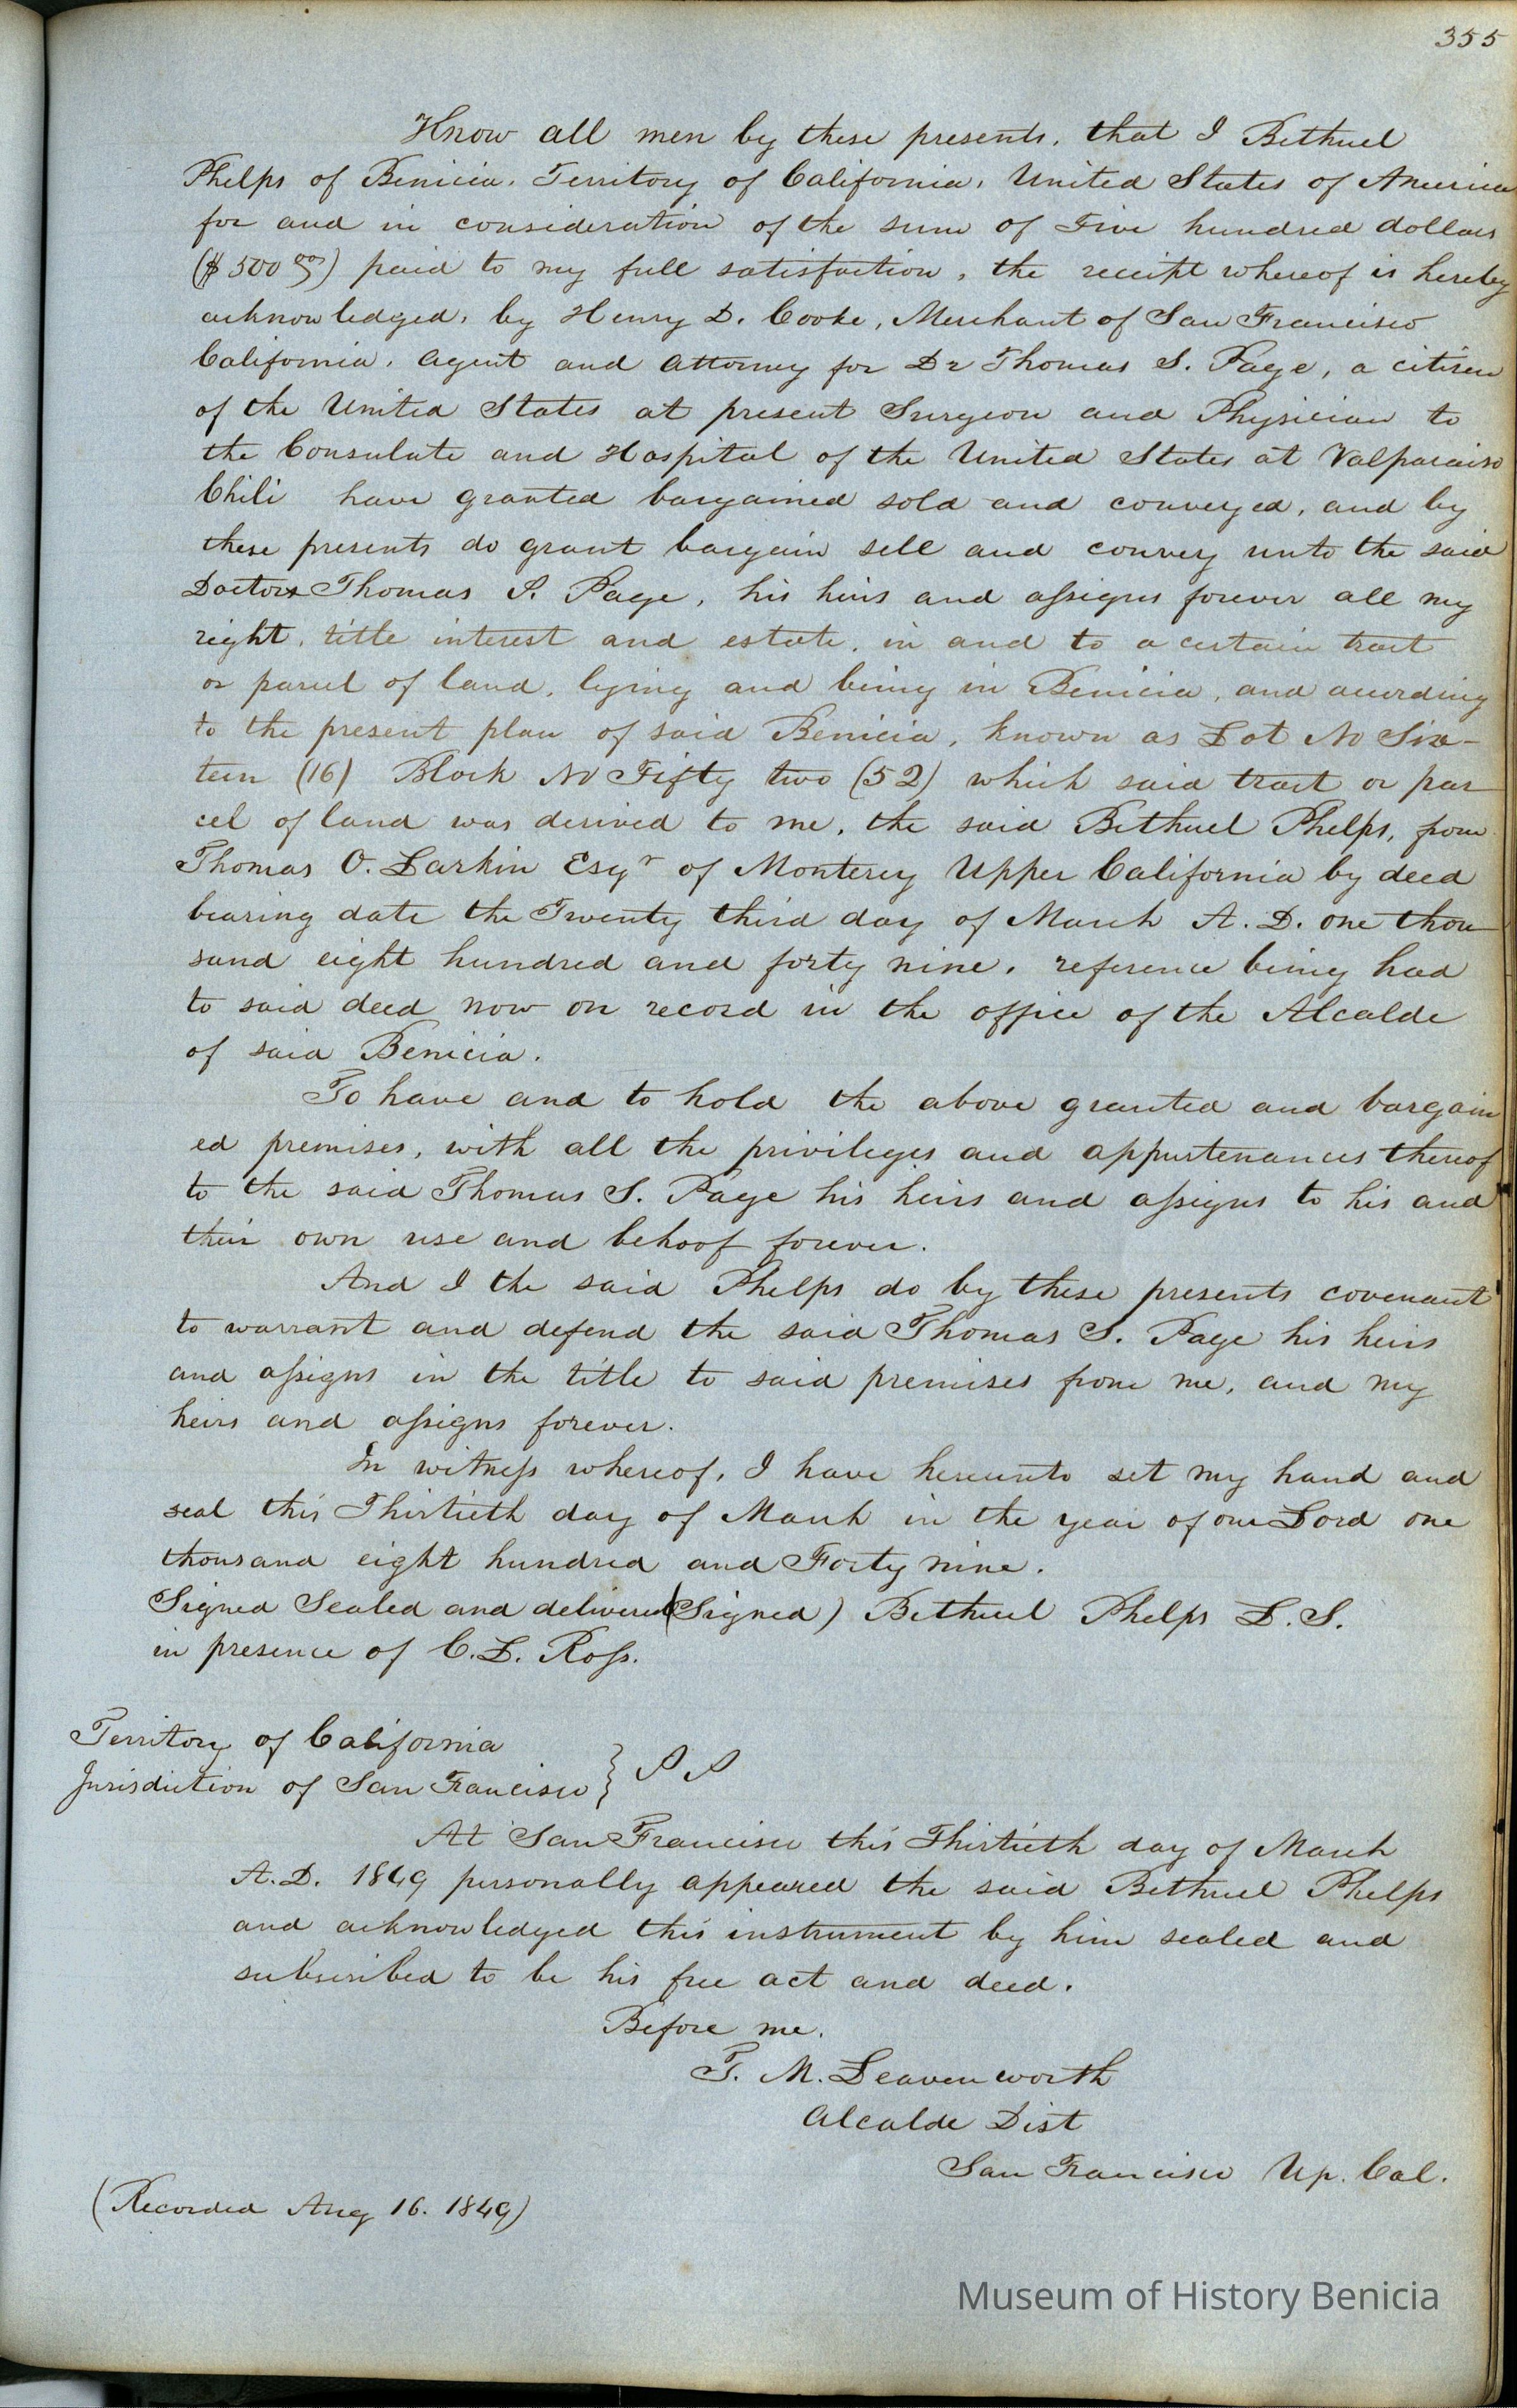 355
Know all men by these presents, that I Bethuel
Phelps of Benicia, Territory of California, United States of America
for and in consideration of the sum of Five hundred dollars
($500 00/) paid to my full satisfaction, the receipt whereof is hereby
acknowledged, by Henry D. Cooke, Merchant of San Francisco
California, agent and attorney for Dr Thomas S. Page, a citizen
of the United States at present Surgeon and Physician to
the Consulate and Hospital of the United States at Valparaiso
Chili have granted bargained sold and conveyed, and by
these presents do grant bargain sell and convey unto the said
Doctor Thomas S. Page, his heirs and assigns forever all my
right, title interest and estate, in and to a certain tract
or parcel of land, lying and being in Benicia, and according
to the present plan of said Benicia, known as Lot No Six-
teen (16) Block No Fifty two (52) which said tract or par
cel of land was derived to me, the said Bethuel Phelps, from
Thomas O. Larkin Esqr of Monterey Upper California by deed
bearing date the Twenty third day of March A.D. one thou
sand eight hundred and forty nine, reference being had
to said deed now on record in the office of the Alcalde
of said Benicia.
To have and to hold the above granted and bargain
ed premises, with all the privileges and appurtenances thereof
to the said Thomas S. Page his heirs and assigns to his and
their own use and behoof forever.
And I the said Phelps do by these presents covenant
to warrant and defend the said Thomas S. Page his heirs
and assigns in the title to said premises from me, and my
heirs and assigns forever.
In witness whereof, I have hereunto set my hand and
seal this Thirtieth day of March in the year of our Lord one
thousand eight hundred and Forty nine.
Signed Sealed and delivered (Signed) Bethuel Phelps L.S.
in presence of C.L. Ross.
Territory of California
Jurisdiction of San Francisco } S S
At San Francisco this Thirtieth day of March
A.D. 1849 personally appeared the said Bethuel Phelps
and acknowledged this instrument by him sealed and
subscribed to be his free act and deed.
Before me.
T. M. Leavenworth
Alcalde Dist
San Francisco Up. Cal.
(Recorded Aug 16. 1849)
Museum of History Benicia